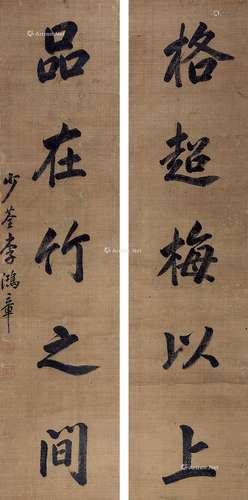 格超梅以上
品在竹之間
少荃李鴻章